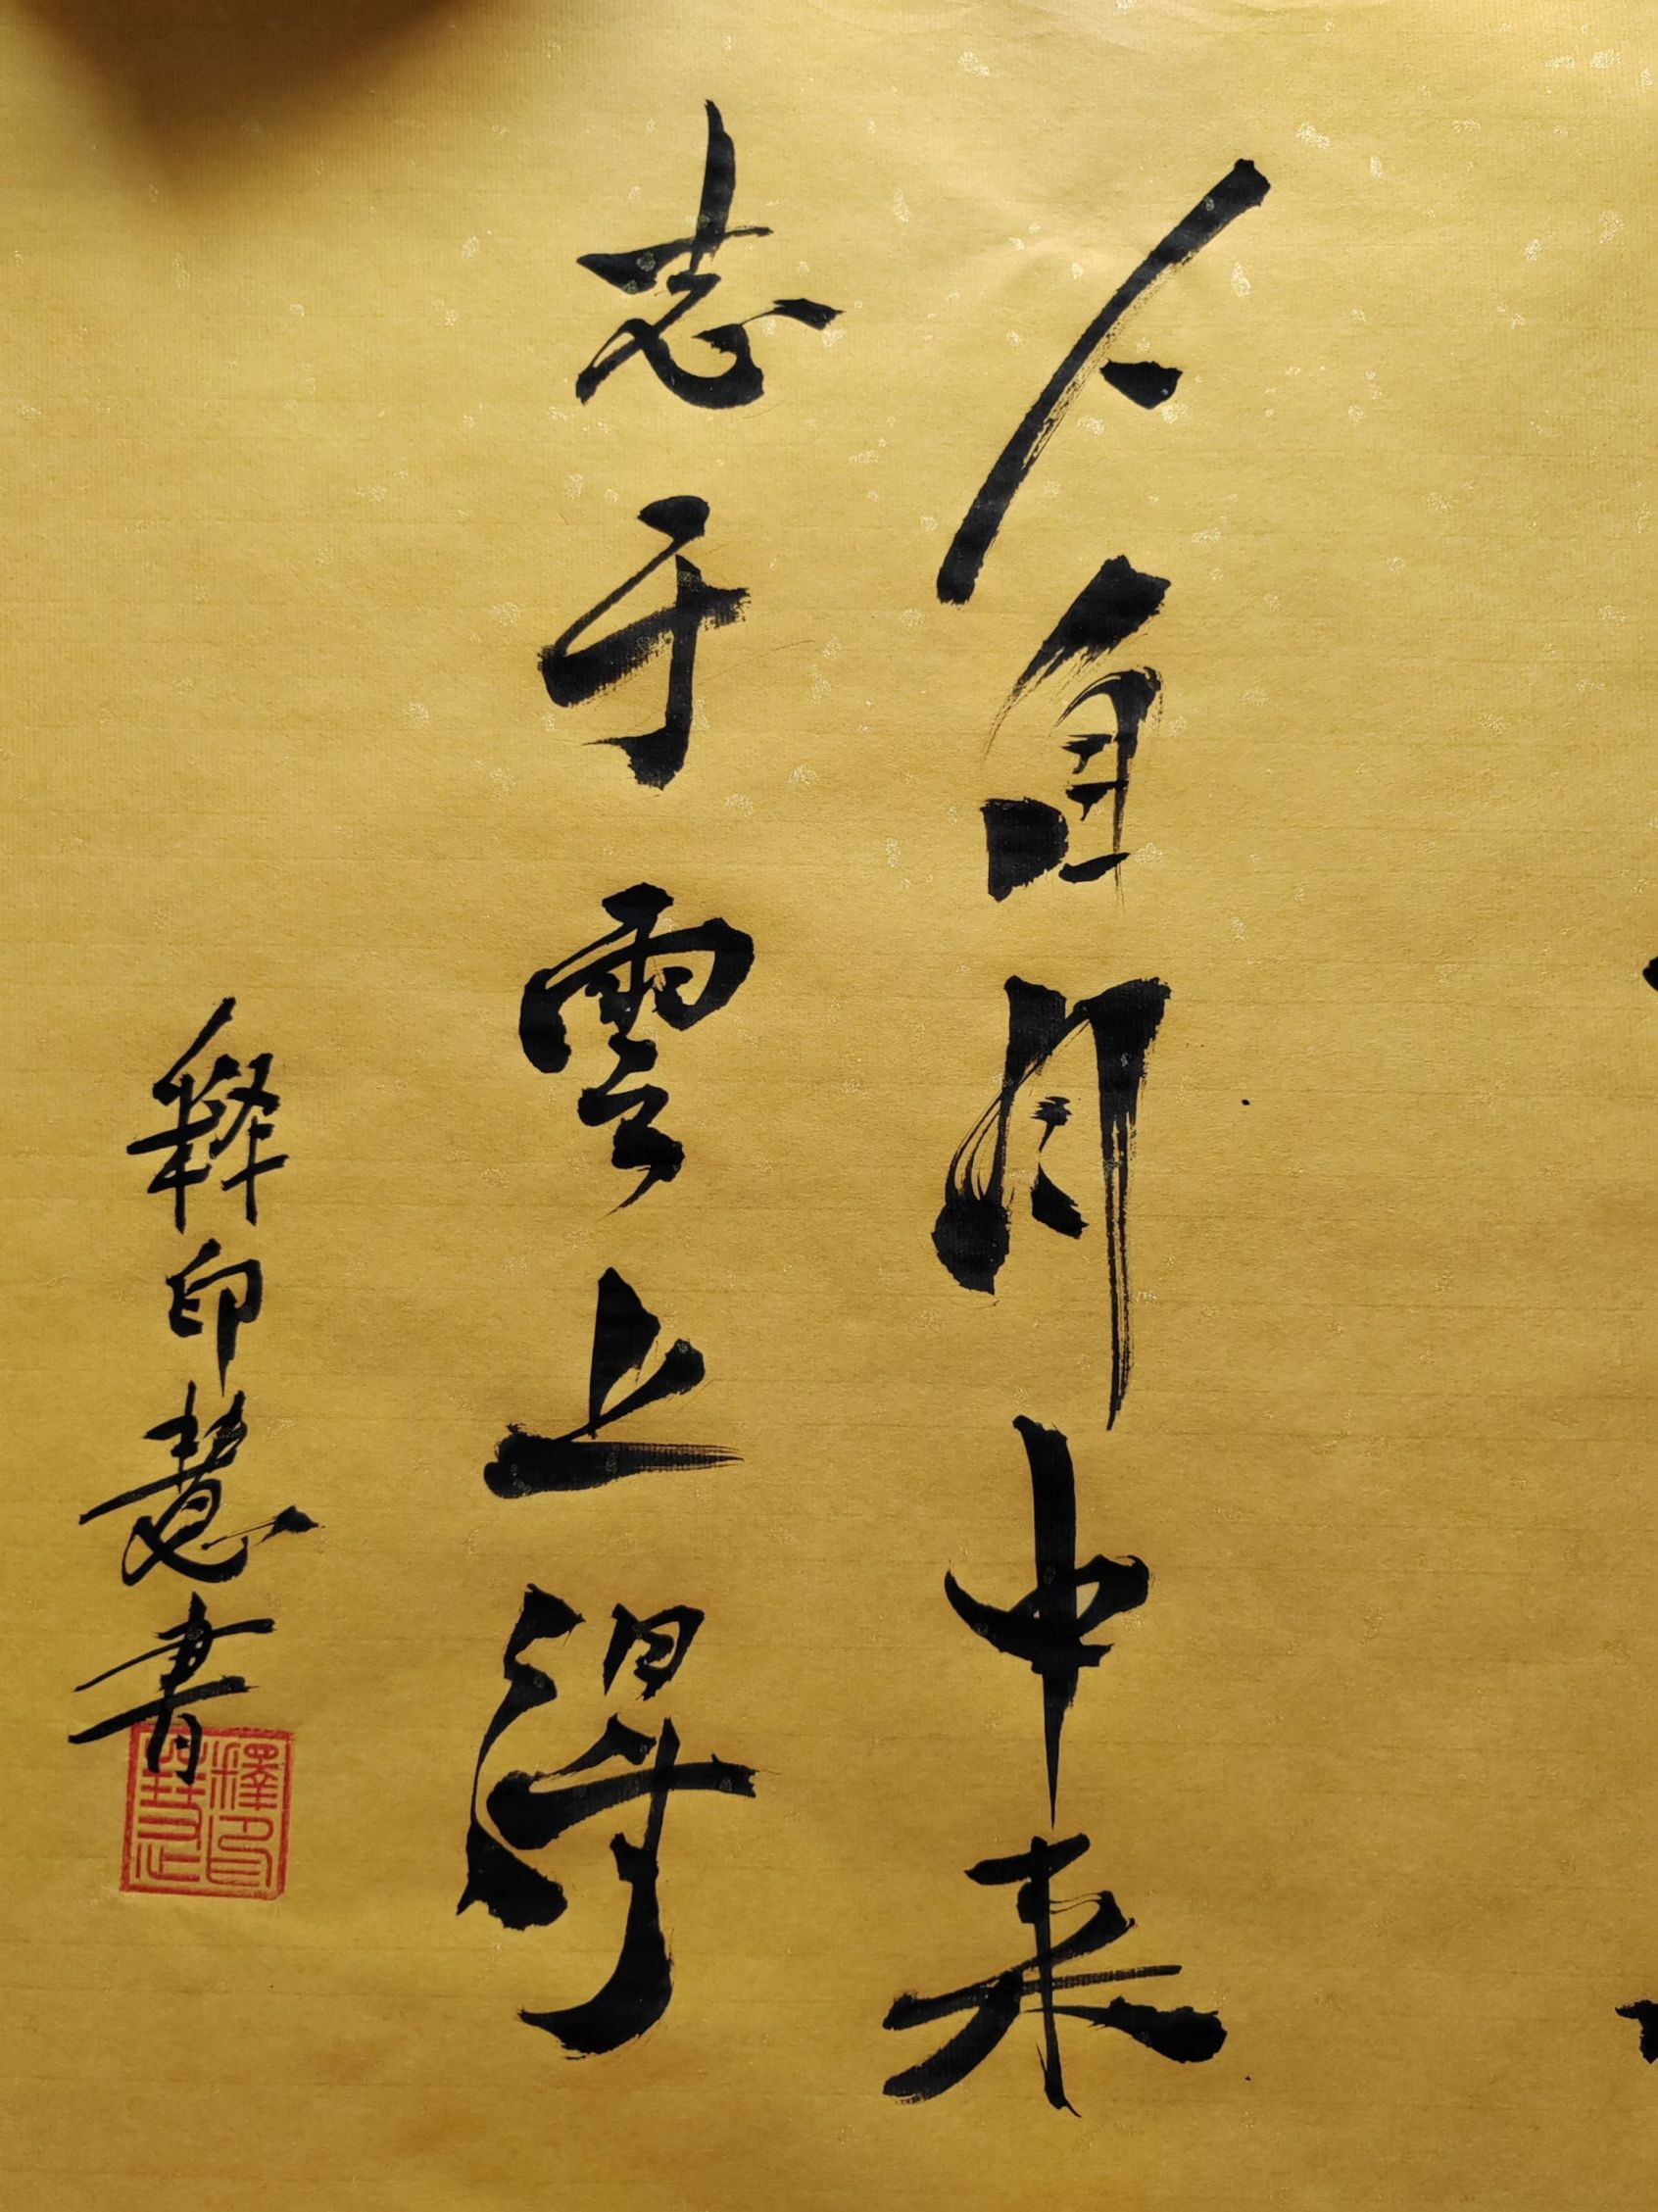 人自月中来
志于雲上得
释印慧書
釋印慧